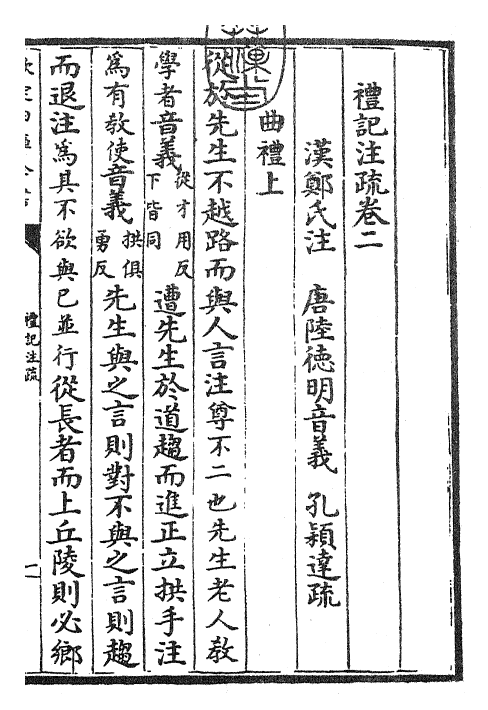 禮記注疏卷二
漢鄭氏注 唐陸徳明音義 孔穎達疏
曲禮上
從於先生不越路而與人言注尊不二也先生老人教
學者音義從才用反下皆同遭先生於道趨而進正立拱手注
為有教使音義拱俱勇反先生與之言則對不與之言則趨
而退注為其不欲與已並行從長者而上丘陵則必鄉
禮記注疏
一